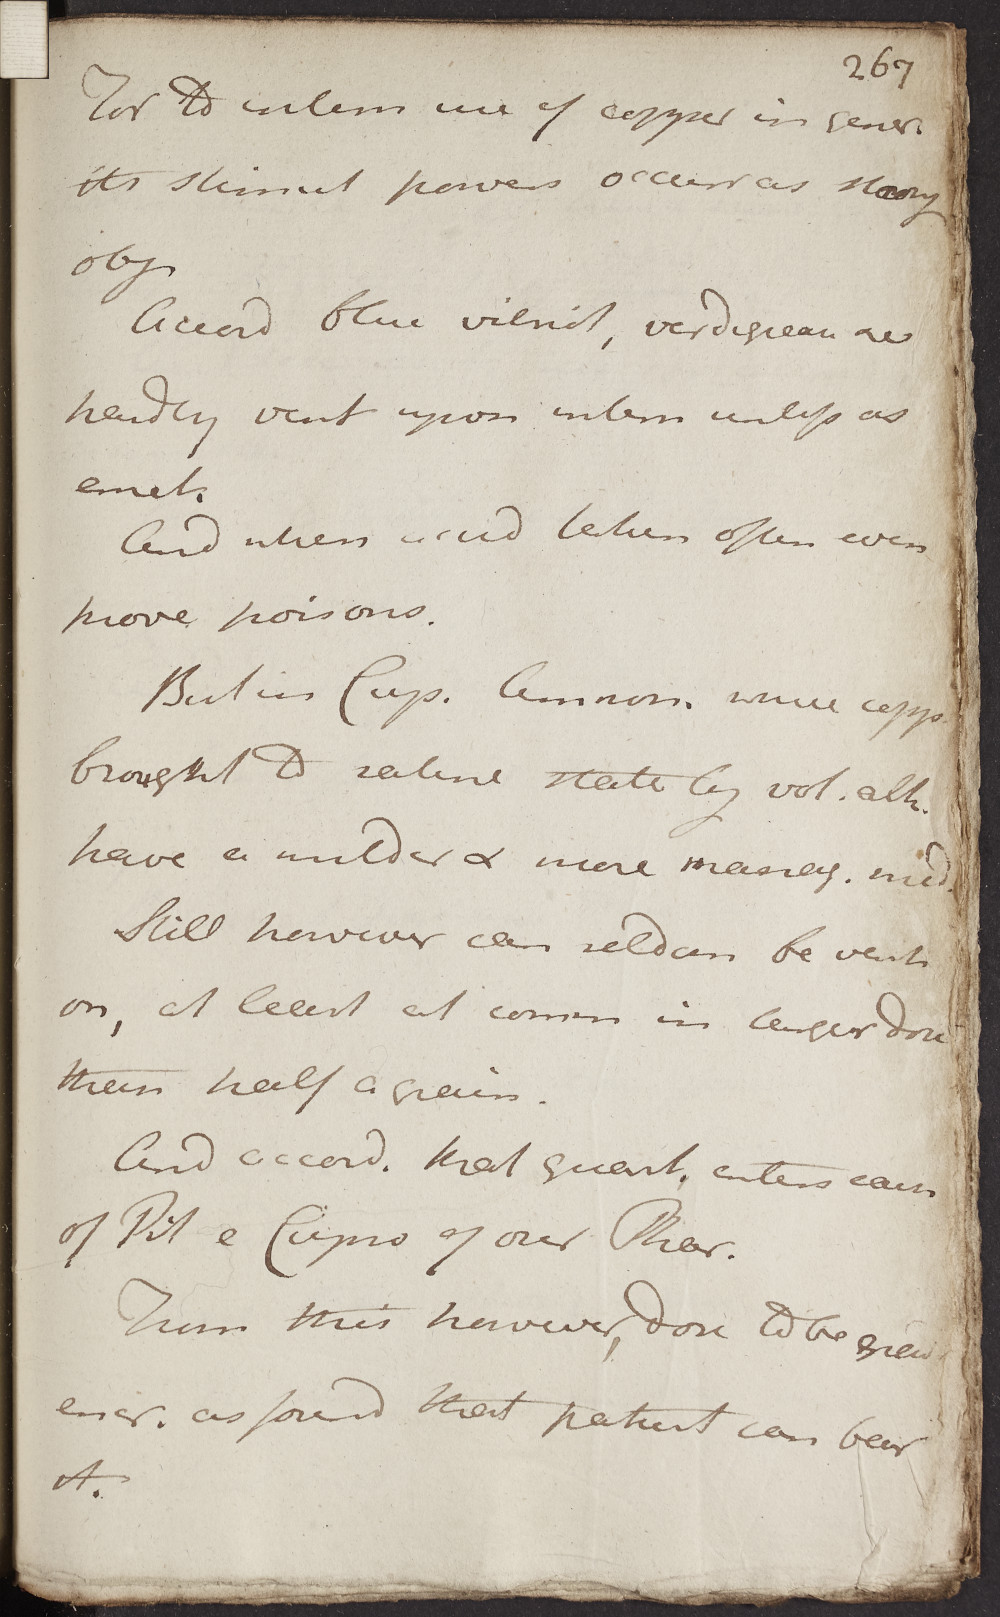 267
For to intern use of copper in gener.
its stimul powers occurr as strong
obj.
Accord blue vitriol, verdigrease are
hardly vent upon intern unless as
emet.
And when accid taken often even
prove poisons.
But in Cup. Ammon. where copp.
brought to saline state by vol. alk.
have a milder & more manag. med.
Still however can seldom be vent
on, at least at comm in larger dose
than half a grain.
And accord. that quant. enters each
of Pil e Cupro of our Phar.
From this however, dose to be grad
encr. as found that patient can bear
it.